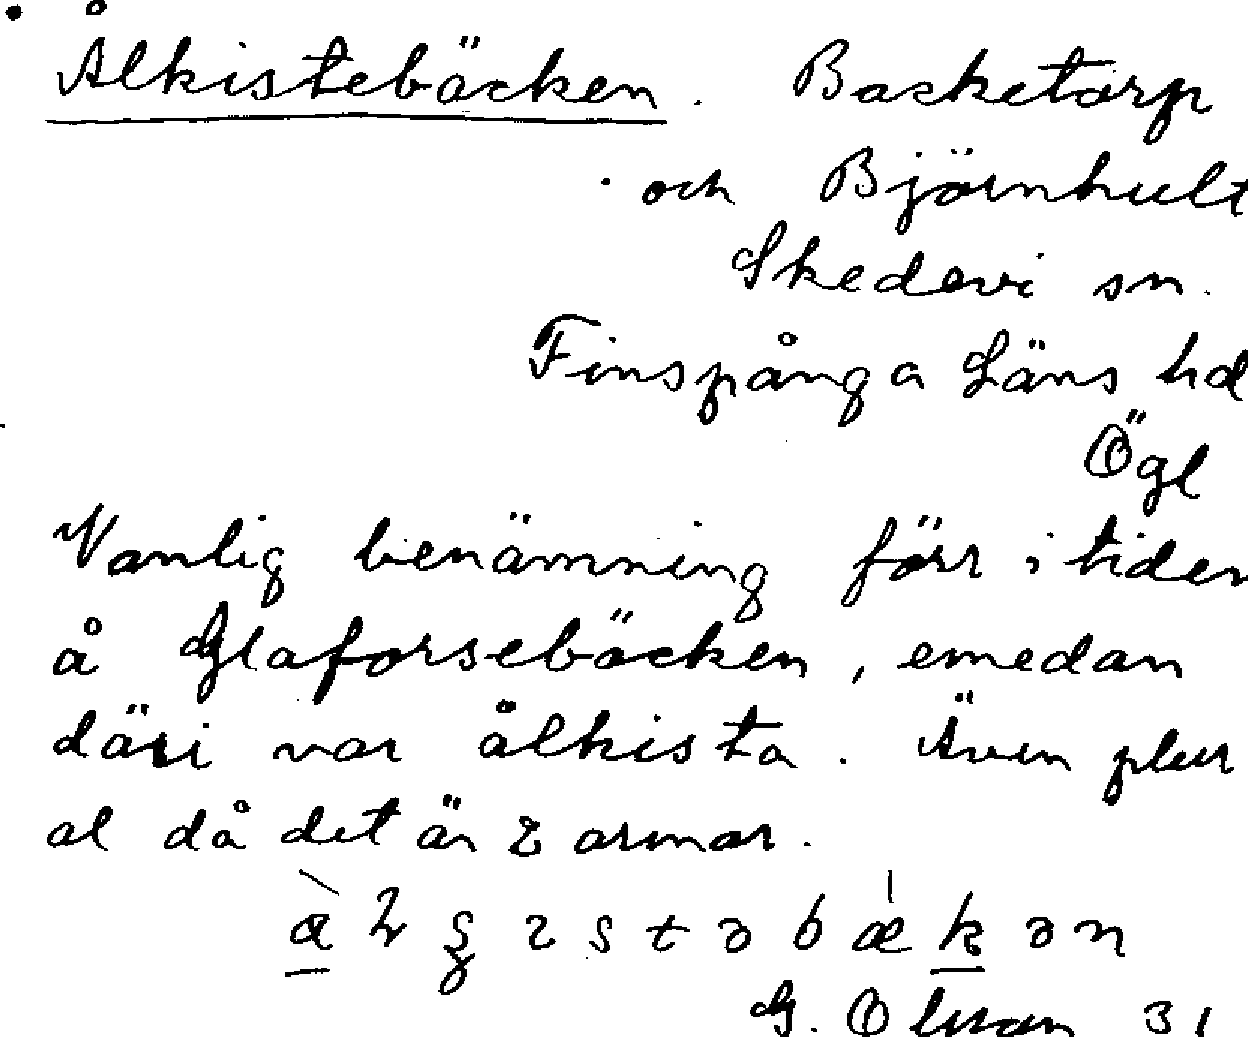 Ålkistebäcken. Backetorp
och Björnhult
Skedevi sn.
Finspånga Läns hd
Ögl
Vanlig benämning förr i tiden
å Glaforsebäcken, emedan
däri var ålkista. Även plur
al då det är 2 armar.
G. Olsson 31